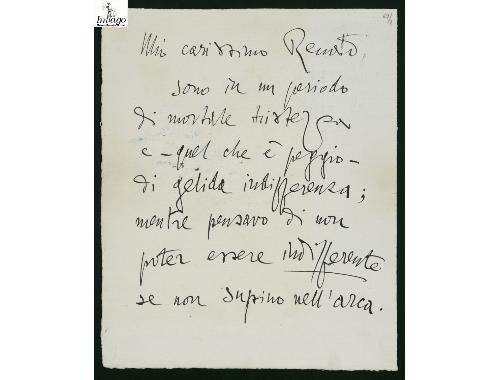 Imago
Mio carissimo Renato,
sono in un periodo
di mortale tristezza
e – quel che è peggio –
di gelida indifferenza;
mentre pensavo di non
poter essere indifferente
se non supino nell'arca.